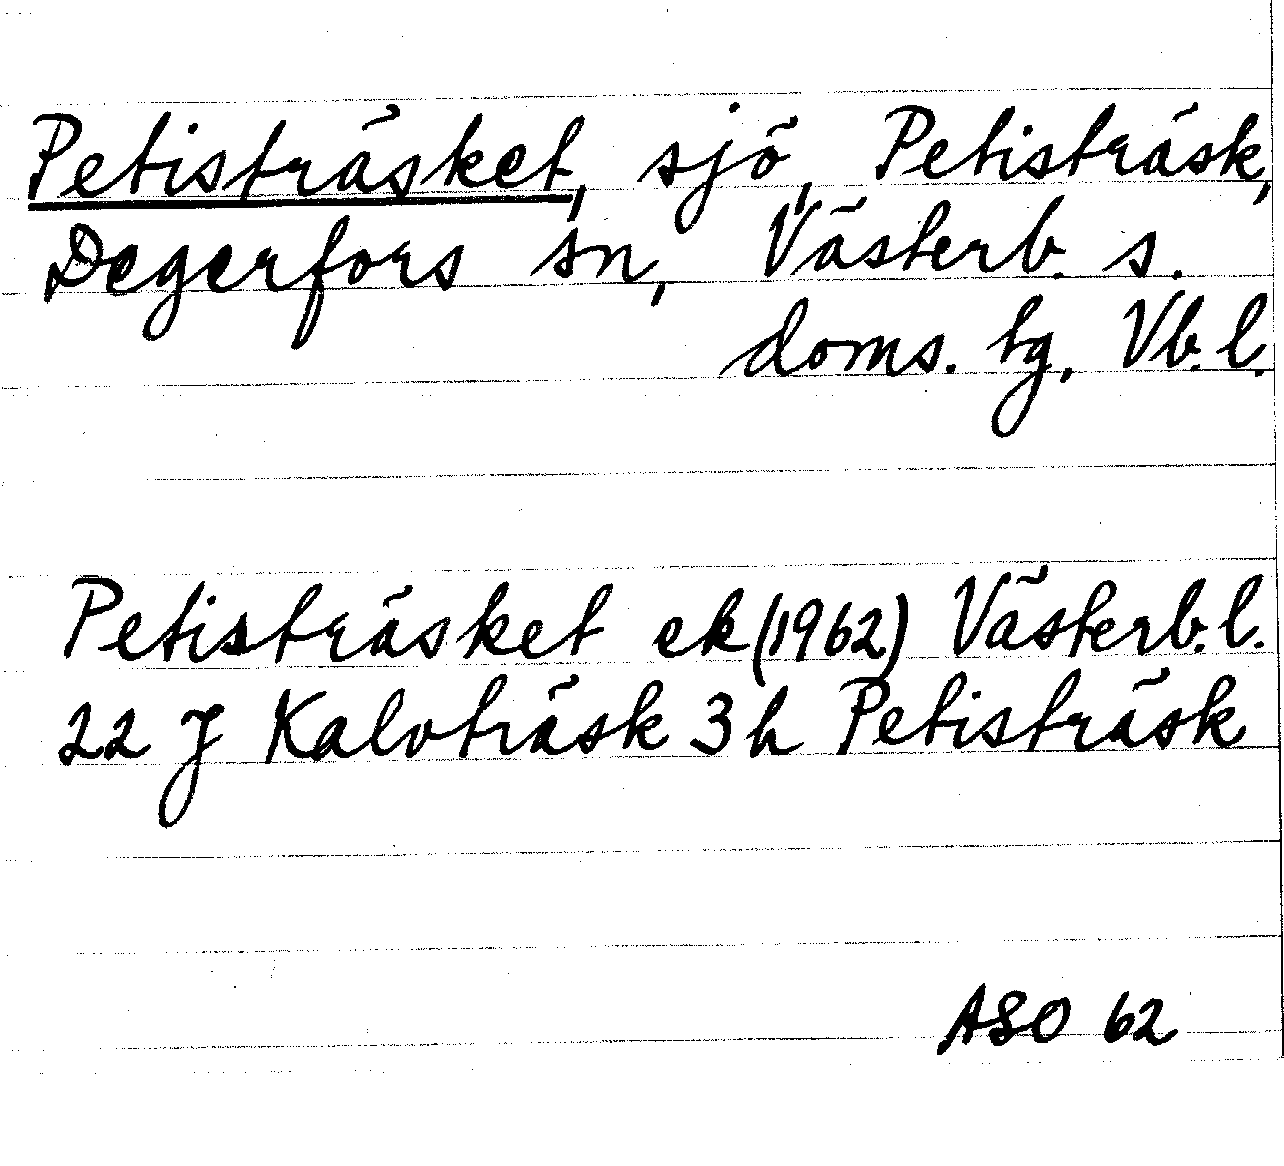 Petisträsket, sjö, Petisträsk,
Degerfors sn, Västerb. s.
doms. tg, Vb. l.
Petisträsket ek (1962) Västerb. l.
22 J Kalvträsk 3 h Petisträsk
ASO 62